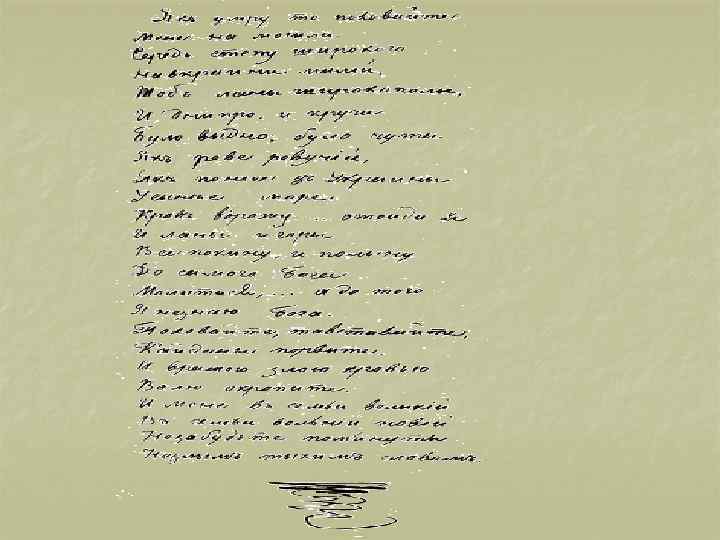 Якъ умру то поховайте
Мене на могыли
Середь степу широкого
На вкраини мылій,
Щобъ ланы широкополи,
И Днипро, и кручи
Було выдно, було чуты
Якъ реве ревучій,
Якъ понесе зъ Украины
У сынее море
Кровь ворожу ... отойди я
И ланы и горы
Все покину, и полыну
До самого Бога
Молытыся, ... а до того
Я незнаю Бога.
Поховайте, та вставайте,
Кайданы порвите
И вражою злою кровью
Волю окропите.
И мене въ семьи великій
Въ семьи вольній новій
Незабудьте помьянуты
Незлымъ тыхимъ словомъ.